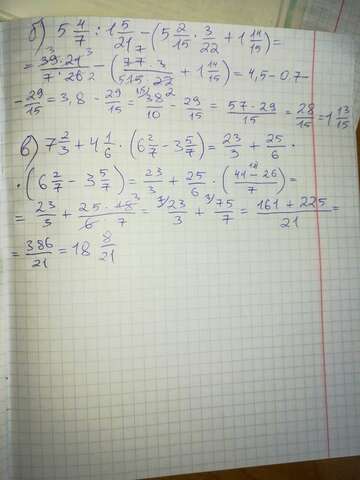 б) 5 4/7 : 1 5/21 - (5 2/15 · 3/22 + 1 14/15) =
= 39·21/7·26 - (77·3/15·22 + 1 14/15) = 4,5 - 0,7 -
- 29/15 = 3,8 - 29/15 = 38/10 - 29/15 = 57-29/15 = 28/15 = 1 13/15
в) 7 2/3 + 4 1/6 · (6 2/7 - 3 5/7) = 23/3 + 25/6 ·
· (6 2/7 - 3 5/7) = 23/3 + 25/6 · (44-26/7) =
= 23/3 + 25·18/6·7 = 23/3 + 75/7 = 161+225/21 =
= 386/21 = 18 8/21